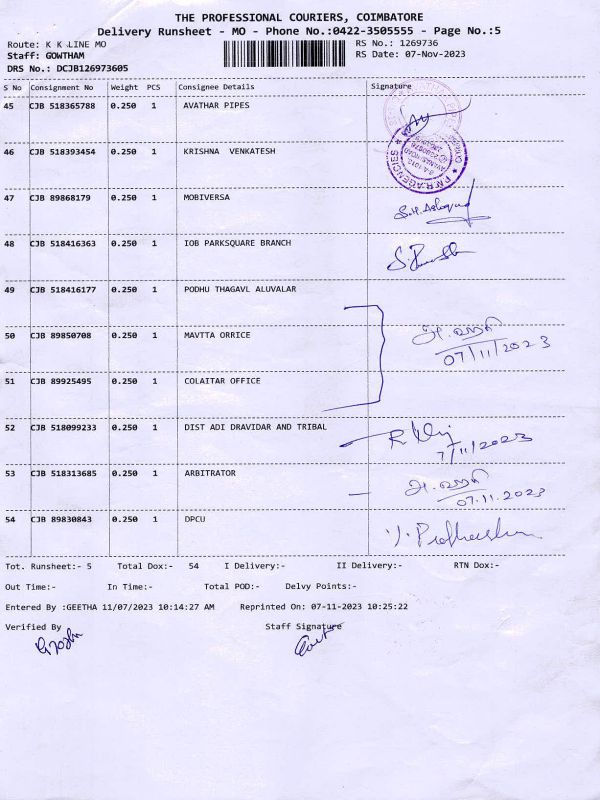 THE PROFESSIONAL COURIERS, COIMBATORE
Delivery Runsheet - MO - Phone No.:0422-3505555 - Page No.:5
Route: K K LINE MO RS No.: 1269736
Staff: GOWTHAM RS Date: 07-Nov-2023
DRS No.: DCJB126973605
S No Consignment No Weight PCS Consignee Details Signature
45 CJB 518365788 0.250 1 AVATHAR PIPES
46 CJB 518393454 0.250 1 KRISHNA VENKATESH
P.M.R. AGENCIES
47 CJB 89868179 0.250 1 MOBIVERSA
48 CJB 518416363 0.250 1 IOB PARKSQUARE BRANCH
49 CJB 518416177 0.250 1 PODHU THAGAVL ALUVALAR
50 CJB 89850708 0.250 1 MAVTTA ORRICE
07/11/2023
51 CJB 89925495 0.250 1 COLAITAR OFFICE
52 CJB 518099233 0.250 1 DIST ADI DRAVIDAR AND TRIBAL
7/11/2023
53 CJB 518313685 0.250 1 ARBITRATOR
07.11.2023
54 CJB 89830843 0.250 1 DPCU
Tot. Runsheet:- 5 Total Dox:- 54 I Delivery:- II Delivery:- RTN Dox:-
Out Time:- In Time:- Total POD:- Delvy Points:-
Entered By :GEETHA 11/07/2023 10:14:27 AM Reprinted On: 07-11-2023 10:25:22
Verified By Staff Signature